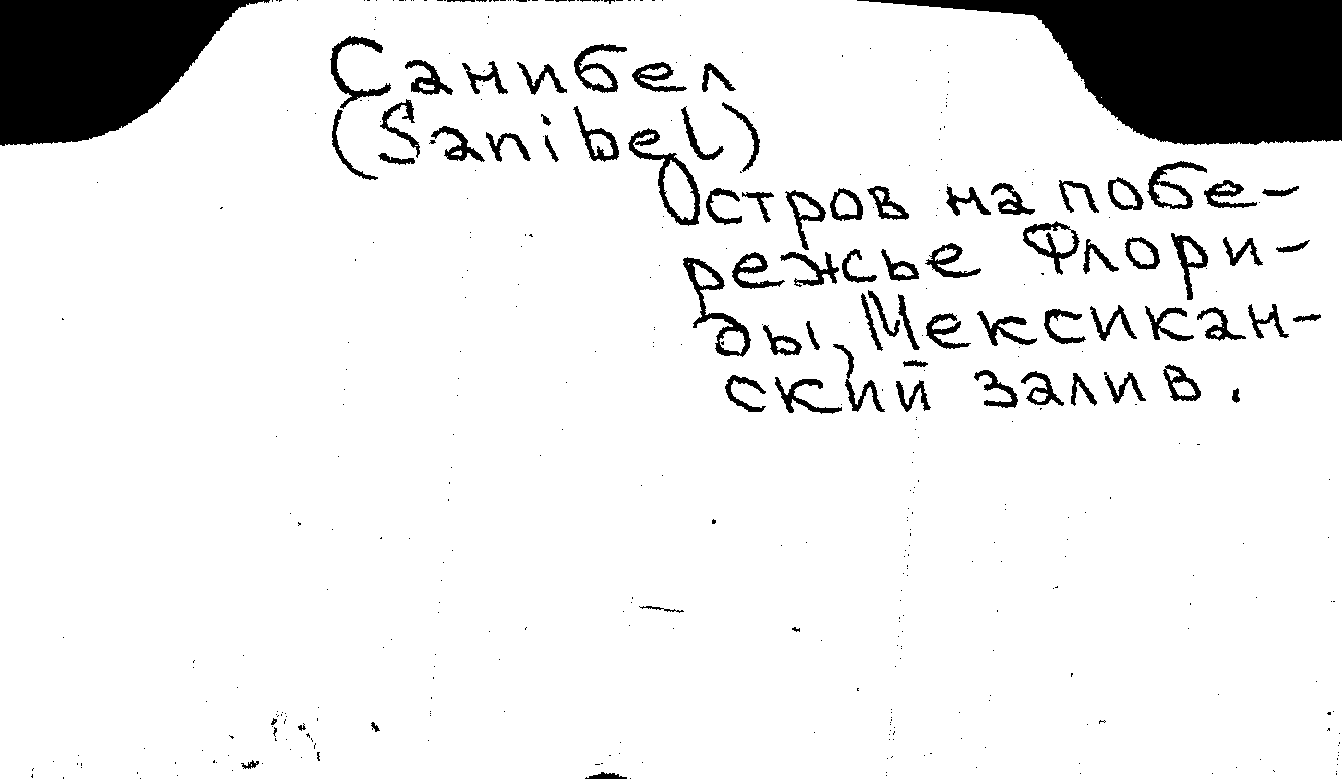 Санибел
(Sanibel)
Остров на побе-
режье Флори-
ды, Мексикан-
ский залив.